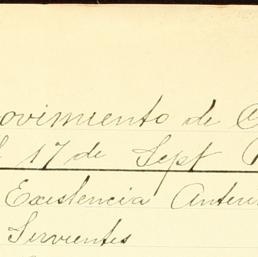 ovimiento de C
l 17 de Sept
Existencia Anteri
Sirvientes